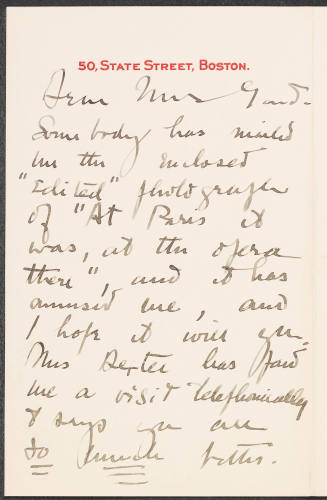 50, STATE STREET, BOSTON.
Dear Mrs Gard-
Somebody has mailed
me the enclosed
"Edited" photograph
of "At Paris it
was, at the opera
there", and it has
amused me, and
I hope it will you.
Mrs Dexter has paid
me a visit telephonically
& says you are
so much better.